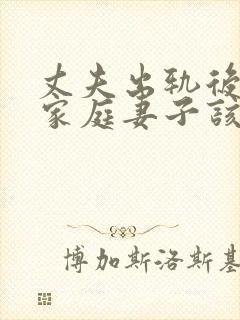 丈夫出軌後
家庭妻子該
博加斯洛斯基